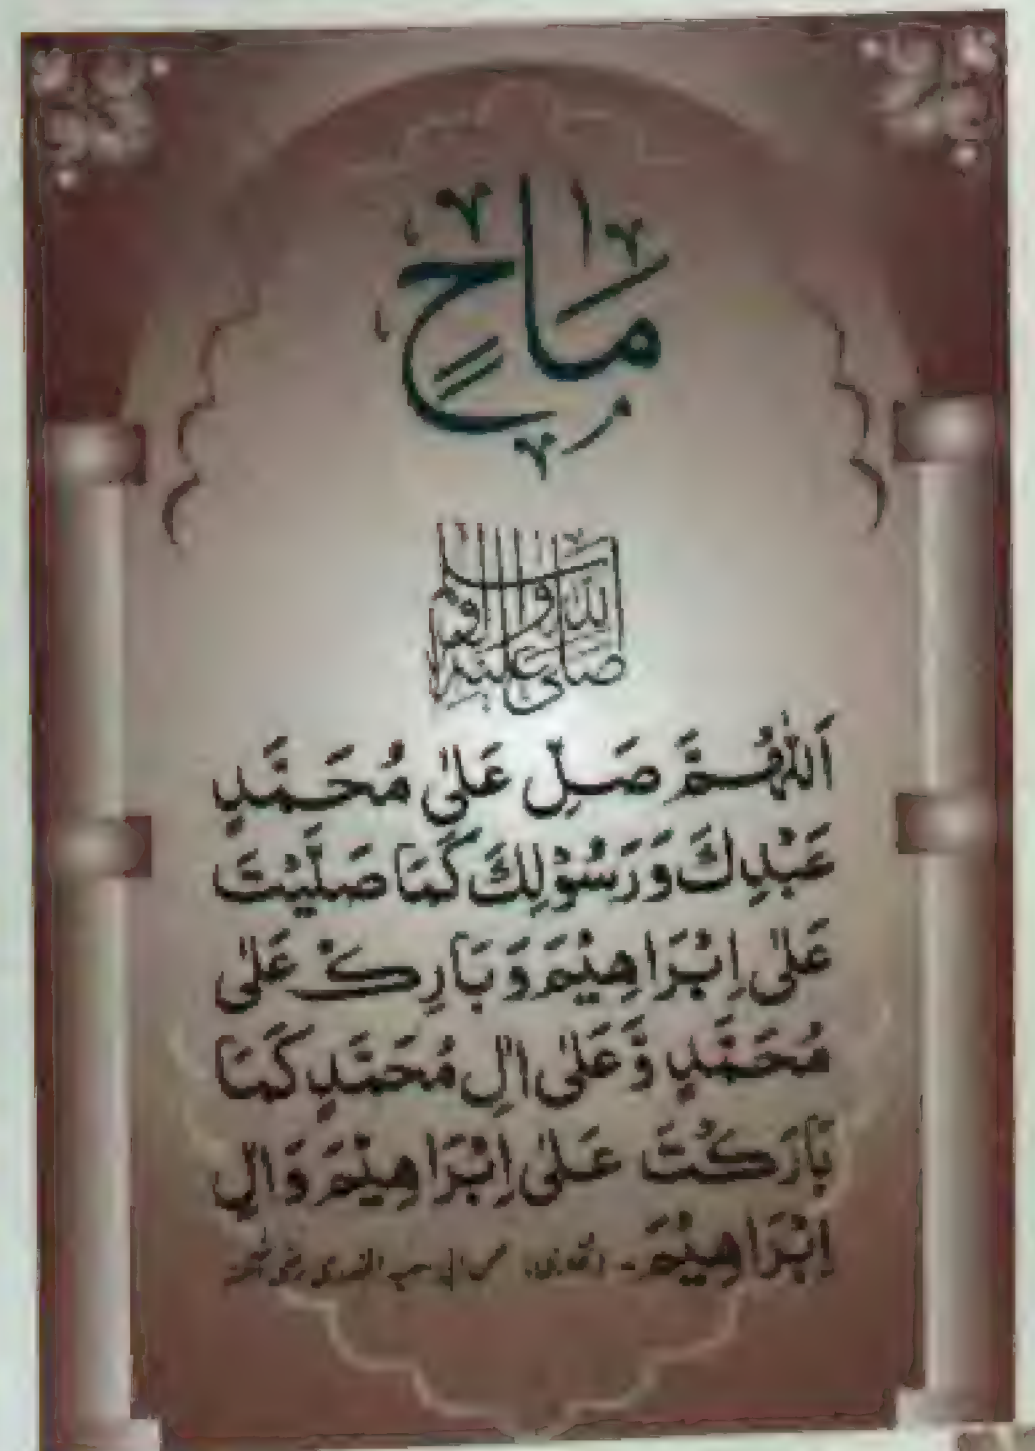 مَاحِ
صلی اللہ علیہ وآلہ وسلم
اَللّٰهُمَّ صَلِّ عَلٰى مُحَمَّدٍ
عَبْدِكَ وَرَسُوْلِكَ كَمَا صَلَّيْتَ
عَلٰى اِبْرَاهِيْمَ وَبَارِكْ عَلٰى
مُحَمَّدٍ وَّعَلٰى اٰلِ مُحَمَّدٍ كَمَا
بَارَكْتَ عَلٰى اِبْرَاهِيْمَ وَاٰلِ
اِبْرَاهِيْمَ۔